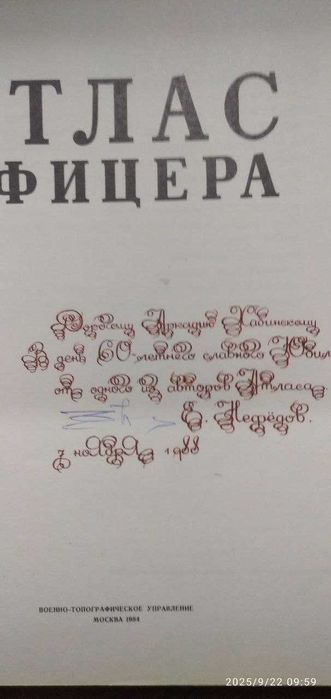 ТЛАС
ФИЦЕРА
Дорогому Аркадию Хабинскому
В день 60-летнего славного Юбил
от одного из авторов Атласа
Е. Нефёдов.
7 ноября 1988
ВОЕННО-ТОПОГРАФИЧЕСКОЕ УПРАВЛЕНИЕ
МОСКВА 1984
2025/9/22 09:59